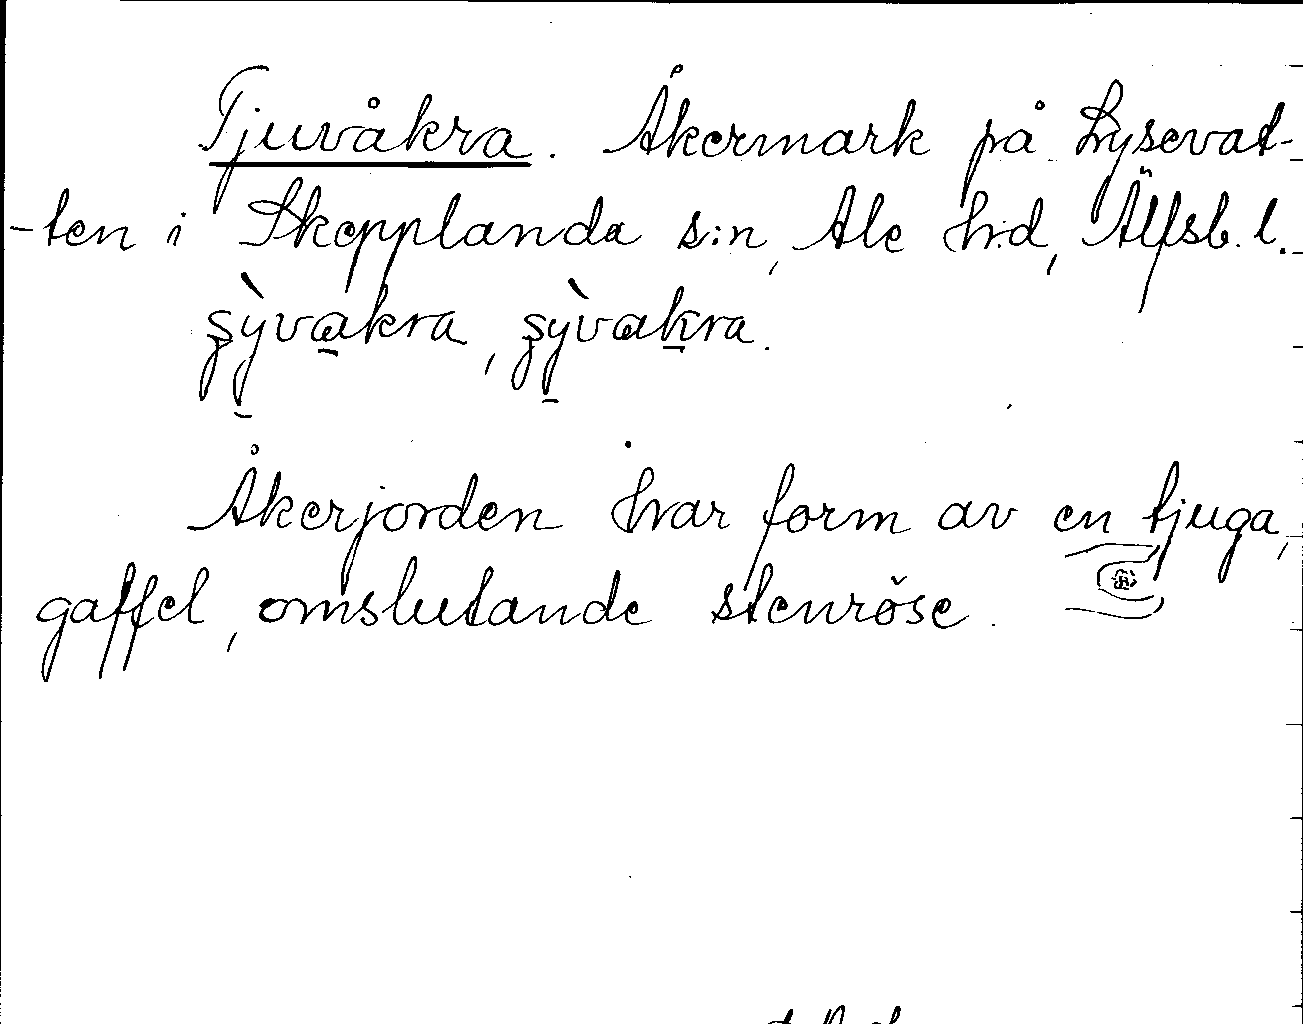 Tjuvåkra. Åkermark på Lysevat-
-ten i Skepplanda s:n, Ale h:d, Älfsb. l.
s̡ỳvakra, s̡ỳvakra.
Åkerjorden har form av en tjuga,
gaffel, omslutande stenröse.